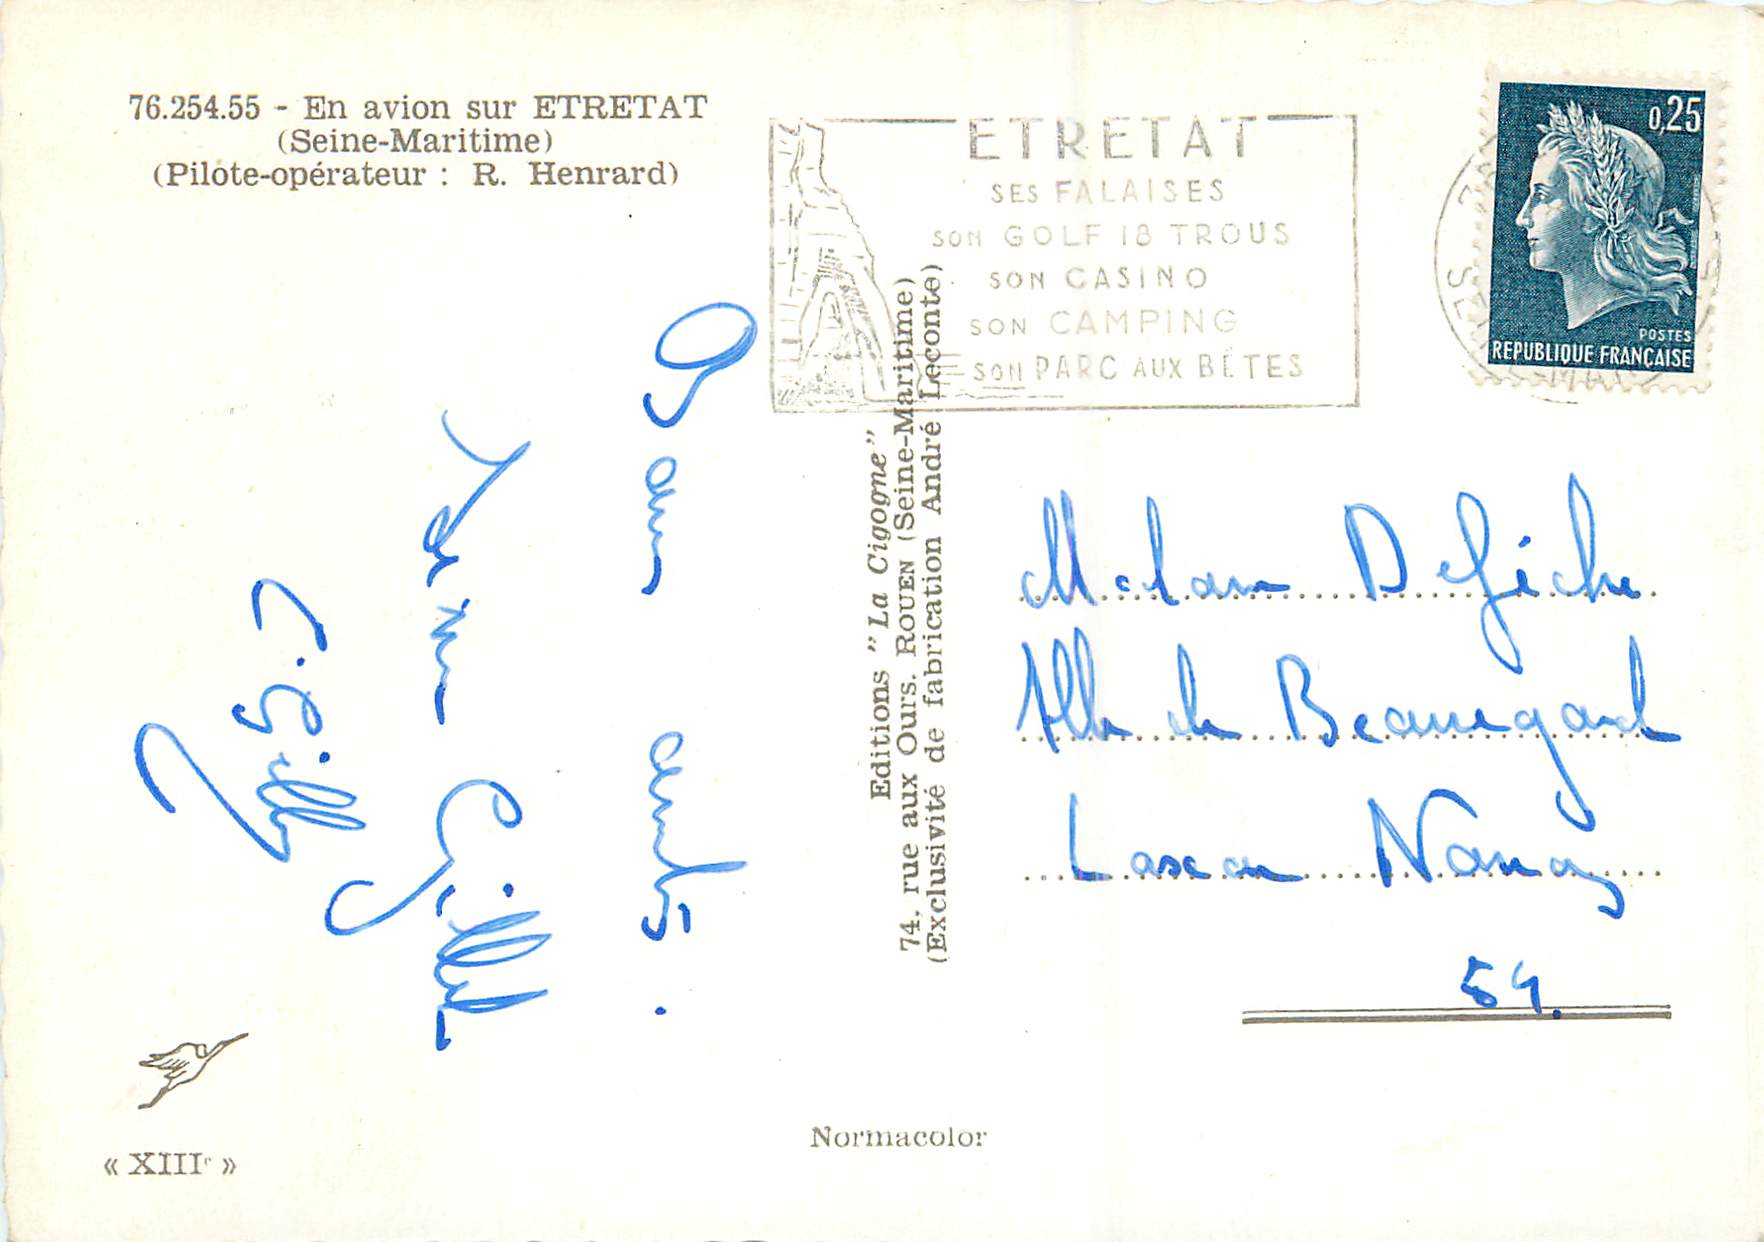 76.254.55 - En avion sur ETRETAT
(Seine-Maritime)
(Pilote-opérateur : R. Henrard)
ETRETAT
SES FALAISES
SON GOLF 18 TROUS
SON CASINO
SON CAMPING
SON PARC AUX BÊTES
0,25
POSTES
REPUBLIQUE FRANÇAISE
Editions "La Cigogne"
74, rue aux Ours. ROUEN (Seine-Maritime)
(Exclusivité de fabrication André Leconte)
Bons
.
C. Gilly
Madame
de Beauregard
Nancy
54.
Normacolor
« XIIIᵉ »